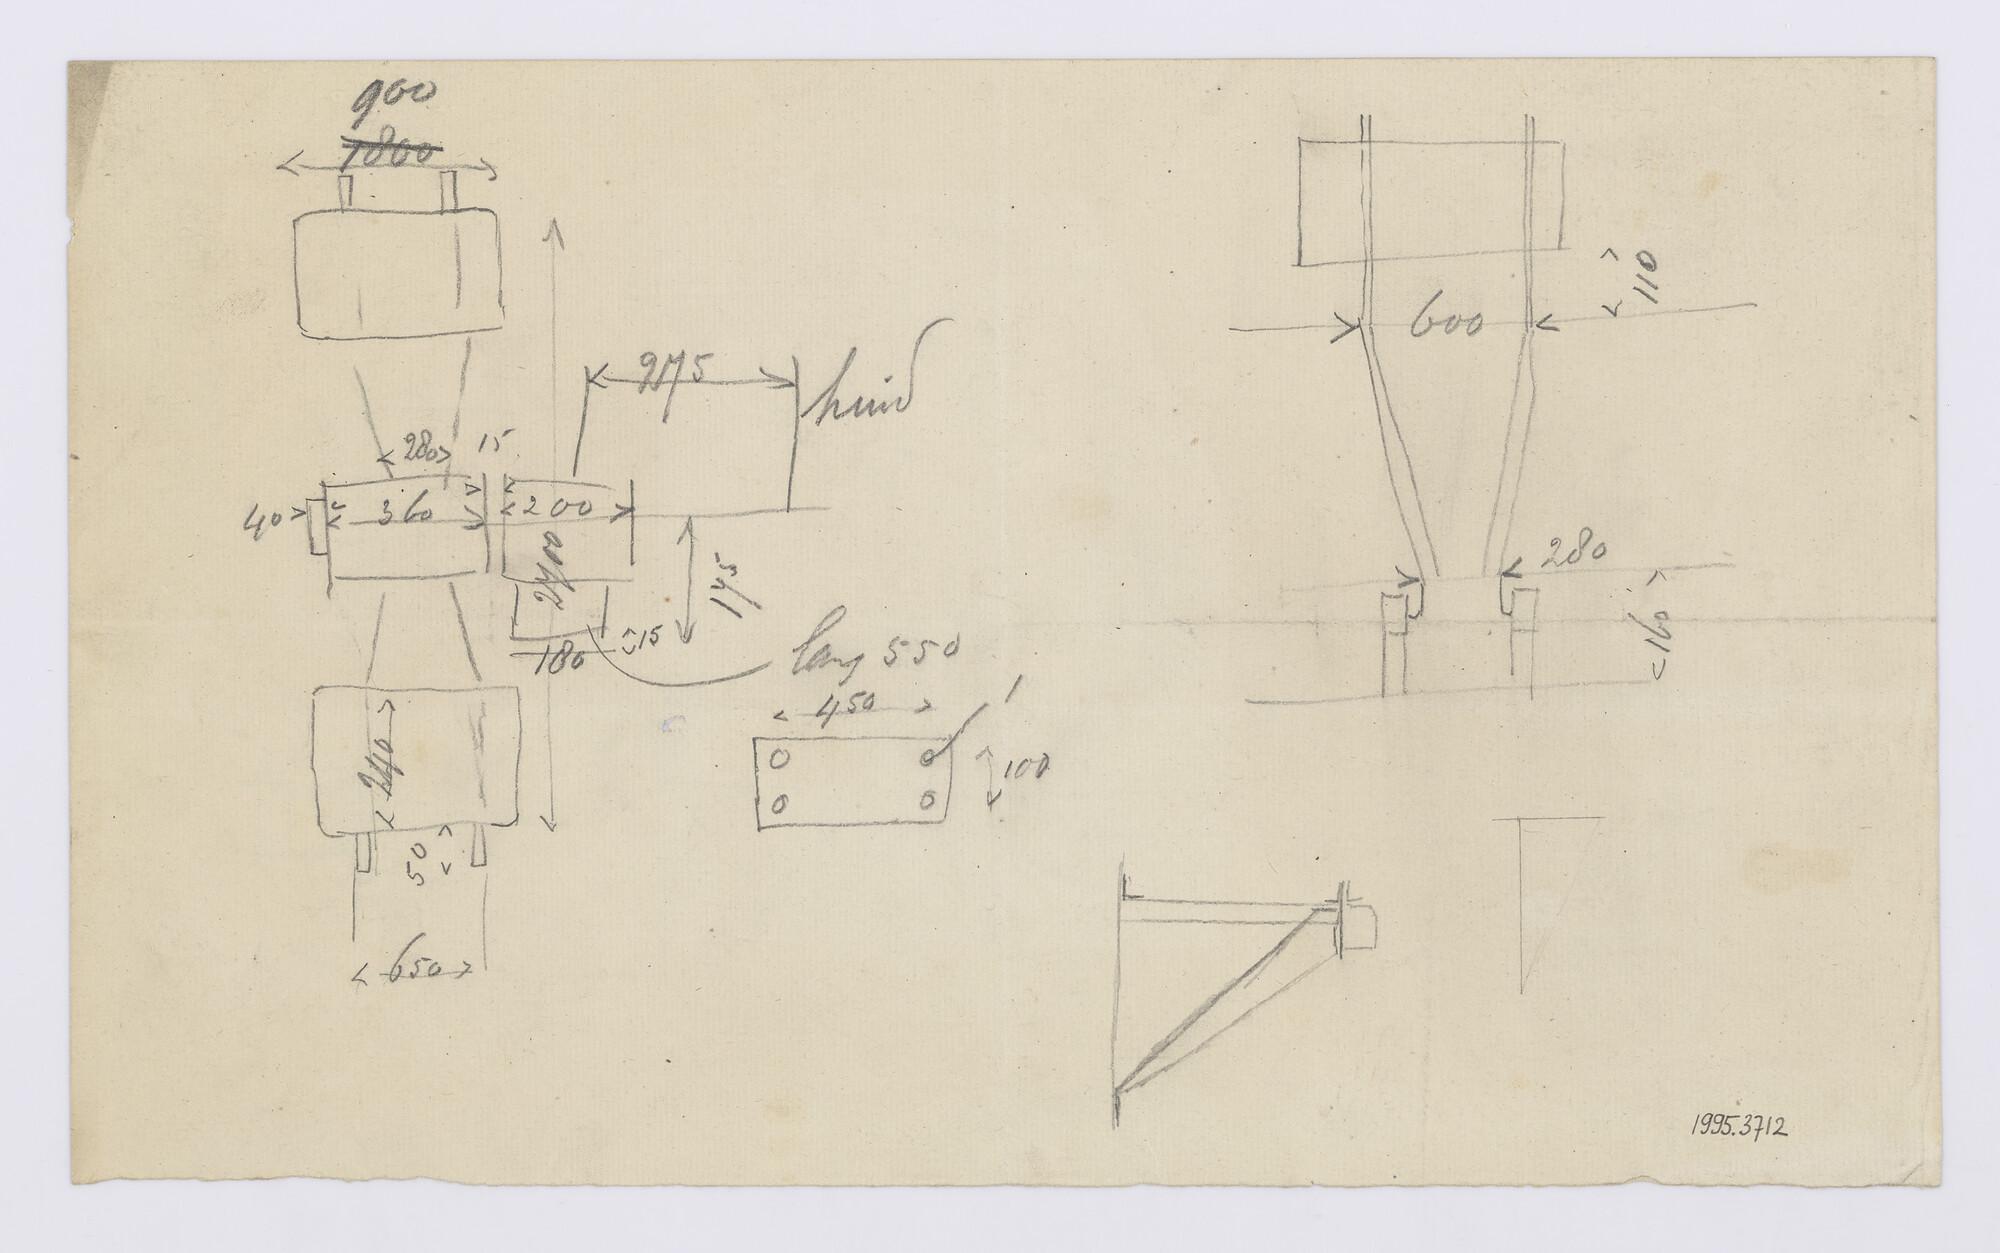 900
1800
275
huid
280
15
40
360
200
2400
175
15
180
lang 550
450
1
100
240
50
650
110
600
280
160
1995.3712